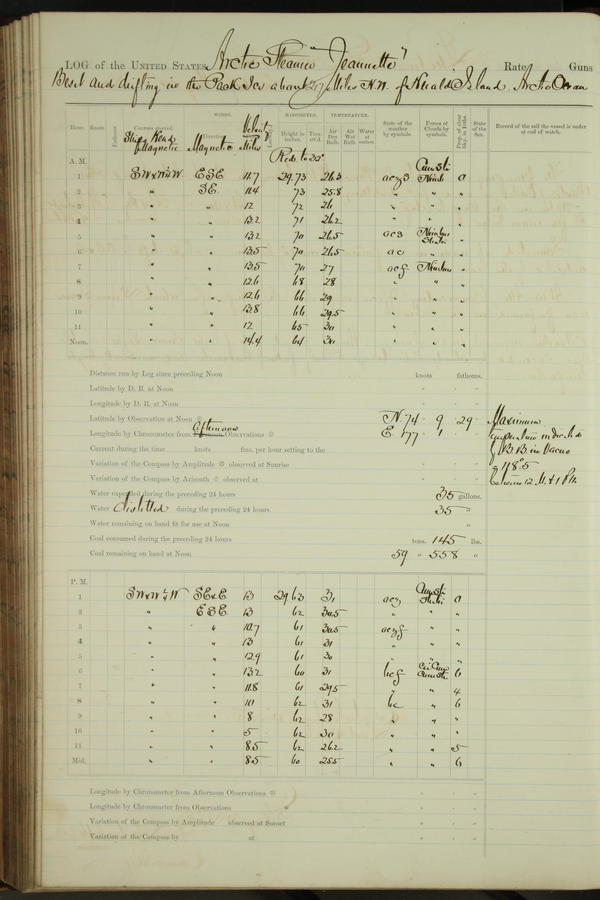 LOG of the UNITED STATES Arctic Steamer "Jeannette" Rate Guns
Beset and drifting in the Pack Ice about Miles N.W. of Herald Island Arctic Ocean
WINDS. BAROMETER. TEMPERATURE.
Hour. Knots. Fathoms. Courses steered. Ship's Head Magnetic Direction Magnetic Velocity Miles Height in inches. Ther. att'd. Air Dry Bulb. Air Wet Bulb. Water at surface. State of the weather by symbols. Forms of Clouds by symbols. Prop. of clear sky, in 10ths. State of the Sea. Record of the sail the vessel is under at end of watch.
A. M. Red. to 32°
1 SWxW½W ESE 11.7 29.73 26.3 Cum Sti 0
2 " SE 11.4 73 25.8 " " "
3 " " 12 72 26 " " "
4 " " 13.2 71 26.2 " " "
5 " " 13.2 70 26.5 ocs Nimbus Strati "
6 " " 13.5 70 26.5 oc " "
7 " " 13.5 70 27 ocf Nimbus "
8 " " 12.6 68 28 " " "
9 " " 12.6 66 29 " " "
10 " " 13.8 66 29.5 " " "
11 " " 12 65 30 " " "
Noon. " " 14.4 64 30 " " "
Distance run by Log since preceding Noon knots fathoms.
Latitude by D. R. at Noon
Longitude by D. R. at Noon
Latitude by Observation at Noon N 74 9 29
Longitude by Chronometer from Afternoon Observations E 177 1
Current during the time knots fms. per hour setting to the
Variation of the Compass by Amplitude observed at Sunrise
Variation of the Compass by Azimuth observed at
Water expended during the preceding 24 hours 35 gallons.
Water distilled during the preceding 24 hours 35 "
Water remaining on hand fit for use at Noon "
Coal consumed during the preceding 24 hours tons. 145 lbs.
Coal remaining on hand at Noon 59 " 558 "
Maximum
temperature indicated
by B.B. in Vacuo
118°.5
between 12 M. & 1 P.M.
P. M.
1 SWxW½W SExE 13 29 63 31 Cum Sti 0
2 " ESE 13 62 30.5 " " "
3 " " 10.7 61 30.5 " "
4 " " 13 61 31 " " "
5 " " 12.9 61 30 " " "
6 " " 13.2 60 31 bcf Cir Cum Cum Sti 6
7 " " 11.8 61 29.5 " " 4
8 " " 10 62 31 bc " 6
9 " " 8 62 28 " " "
10 " " 5 62 30 " " "
11 " " 8.5 62 26.2 " " 5
Mid. " " 8.5 60 25.5 " " 6
Longitude by Chronometer from Afternoon Observations
Longitude by Chronometer from Observations
Variation of the Compass by Amplitude observed at Sunset
Variation of the Compass by at